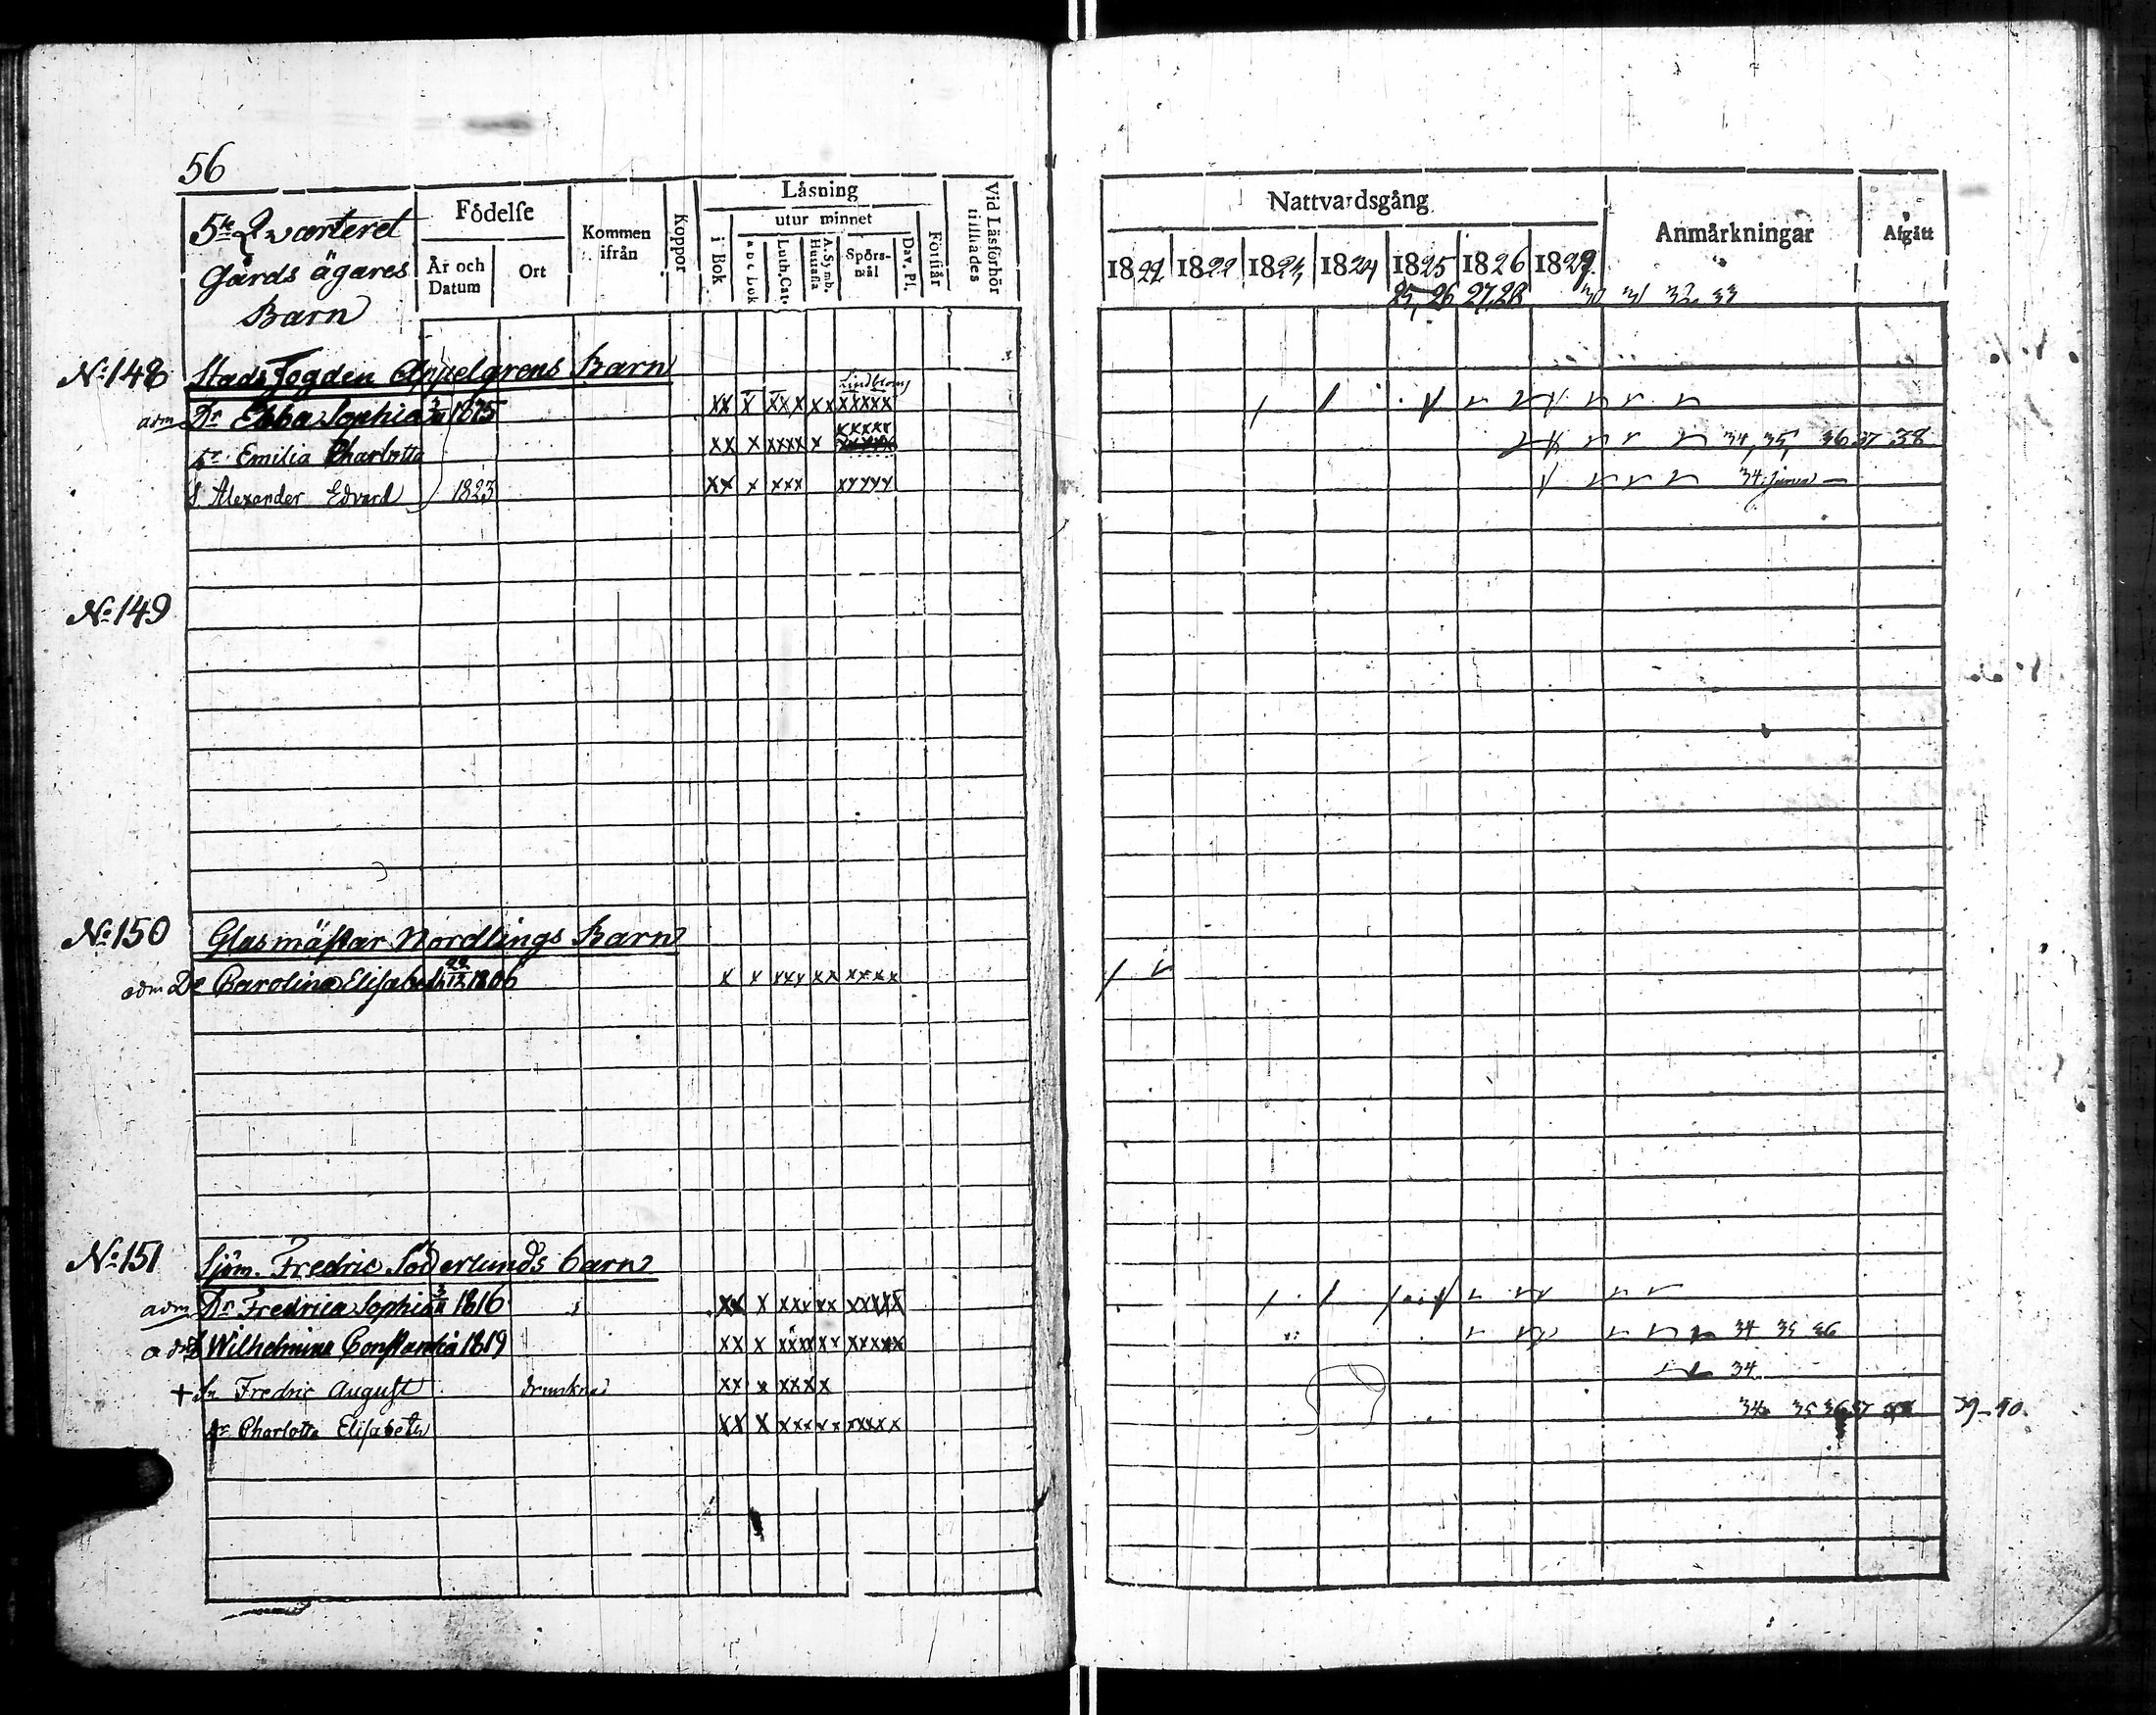 56
5te Qwarteret
Gårds ägares
Barn
Födelse
År och Datum
Ort
Kommen ifrån
Koppor
Läsning
i Bok
utur minnet
a b c bok
Luth. Cat.
A. Symb. Hustafla
Spörs-mål
Dav. Ps.
Förstår
Vid Läsförhör tillstädes
Nattvardsgång
1822 1823 1824 1825 1826
25, 26 27, 28 30 31 32 33
Anmärkningar
Afgått
No 148 Stads Fogden Appelgrens Barn
Lindbloms
adm Dr Ebba Sophia xx x xxx xx xxxxx
xxxxx
Dr Emilia Charlotta xx x xxxx x xxxxx 34, 35, 36 37 38
S. Alexander Edvard 1823 xx x xxx xxxxx 34
No 149
No 150 Glasmästar Nordlings Barn
adm Dr Carolina Elisabeth 22/12 1806 x x xxx xx xxxx
No 151 Sjöm. Fredric Söderlunds barn
adm Dr Fredrica Sophia 1816 xx x xxx xx xxxxx
adm Wilhelmina Constantia 1819 xx x xxxx xx xxxxx 34 35 36
+ Sn Fredric August drunknad xx x xxx x 34
Dr Charlotta Elisabeth xx x xxx xx xxxxx 34 35 36 37 39-40